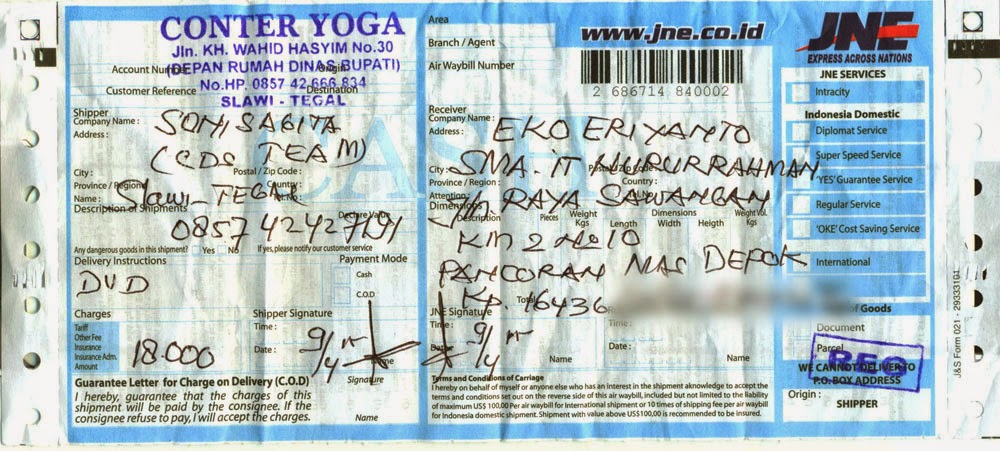 CONTER YOGA
Jln. KH. WAHID HASYIM No.30
(DEPAN RUMAH DINAS BUPATI)
No.HP. 0857 42 666 834
SLAWI - TEGAL
Account Number
Origin
Customer Reference
Destination
Area
Branch / Agent
Air Waybill Number
www.jne.co.id
2 686714 840002
JNE
EXPRESS ACROSS NATIONS
JNE SERVICES
Intracity
Indonesia Domestic
Diplomat Service
Super Speed Service
'YES' Guarantee Service
Regular Service
'OKE' Cost Saving Service
International
CASH
Shipper
Company Name :
Address :
(CDS TEAM)
City :
Postal / Zip Code :
Province / Region
Country :
Name :
Slawi - TEGAL
Description of Shipments
Declare Value
Any dangerous goods in this shipment?
Yes
No
If yes, please notify our customer service
Delivery Instructions
DVD
Payment Mode
Cash
C.O.D
Charges
Tariff
Other Fee
Insurance
Insurance Adm.
Amount
18.000
Shipper Signature
Time :
Date :
9/4
Name
Signature
Guarantee Letter for Charge on Delivery (C.O.D)
I hereby, guarantee that the charges of this
shipment will be paid by the consignee. If the
consignee refuse to pay, I will accept the charges.
Name
Receiver
Company Name :
EKO ERIYANTO
Address :
SMA. IT NURURRAHMAN
City :
Postal / Zip Code :
Province / Region :
Country :
Attention :
Jl. RAYA SAWANGAN
Dimensions
Description
Pieces
Weight Kgs
Length
Dimensions
Width
Height
Weight Vol. Kgs
KM 2 No 10
PANCORAN MAS DEPOK
KP. 16436
Total
JNE Signature
Time :
Date :
9/4
Name
of Goods
Document
Parcel
REG
WE CANNOT DELIVER TO
P.O. BOX ADDRESS
Origin :
SHIPPER
Terms and Conditions of Carriage
I hereby on behalf of myself or anyone else who has an interest in the shipment aknowledge to accept the
terms and conditions set out on the reverse side of this air waybill, included but not limited to the liability
of maximum US$ 100,00 Per air waybill for International shipment or 10 times of shipping fee per air waybill
for Indonesia domestic shipment. Shipment with value above US$100,00 is recommended to be insured.
J&S Form 021 - 29333101